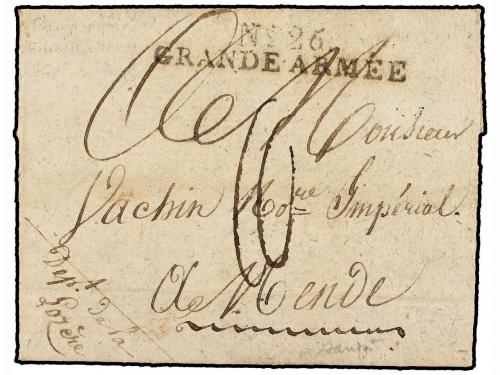 No. 26
GRANDE ARMÉE
A Monsieur
Vachin No.re Impérial.
A Mende
Dep.t De la
Lozère